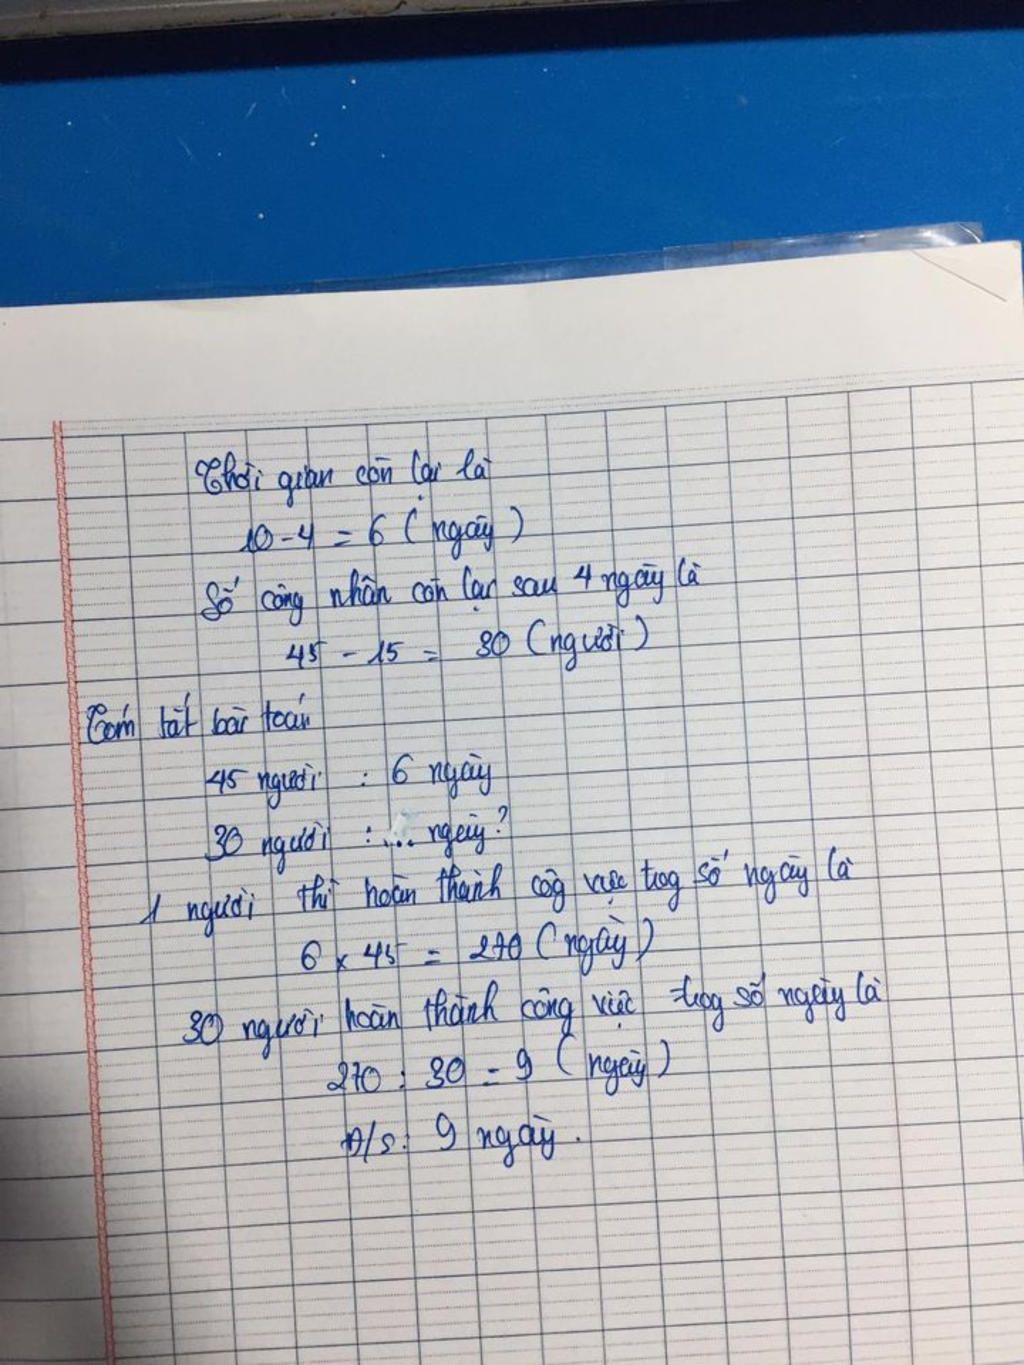 Thời gian còn lại là
10 - 4 = 6 ( ngày )
Số công nhân còn lại sau 4 ngày là
45 - 15 = 30 ( người )
Tóm tắt bài toán
45 người : 6 ngày
30 người : ... ngày ?
1 người thì hoàn thành côg việc trog số ngày là
6 x 45 = 270 ( ngày )
30 người hoàn thành công việc trog số ngày là
270 : 30 = 9 ( ngày )
Đ/S : 9 ngày .